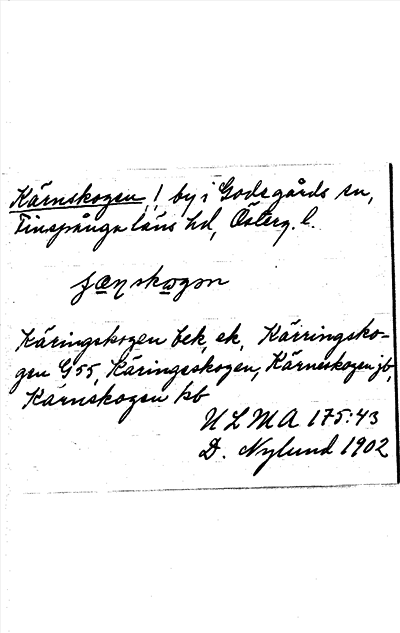 Kärnskogen ! by i Godegårds sn,
Finspånga läns hd, Österg. l.
jæɳskogən
Käringskogen bek, ek, Kärringsko-
gen G55, Käringeskogen, Kärneskogen jb,
Kärnskogen kb
ULMA 175:43
D. Nylund 1902